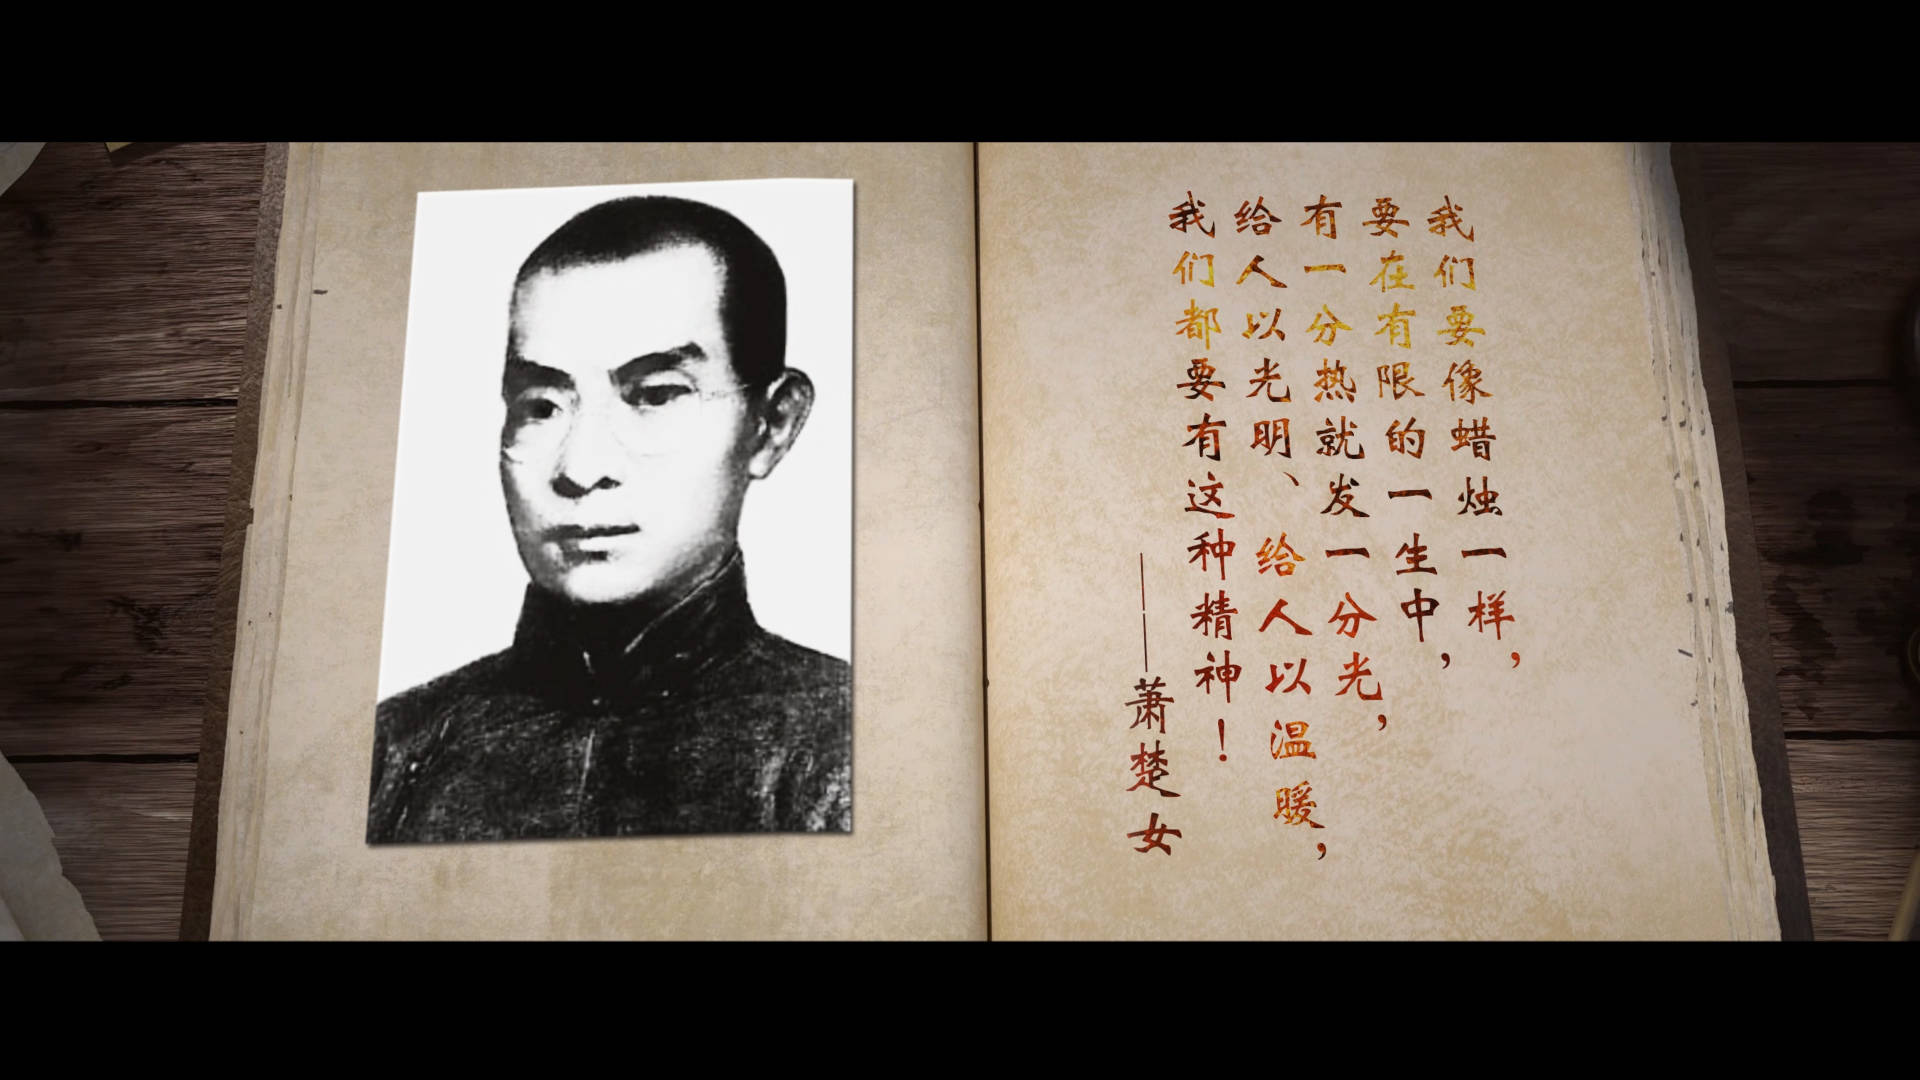 我们要像蜡烛一样，
要在有限的一生中，
有一分热就发一分光，
给人以光明、给人以温暖，
我们都要有这种精神！
——萧楚女